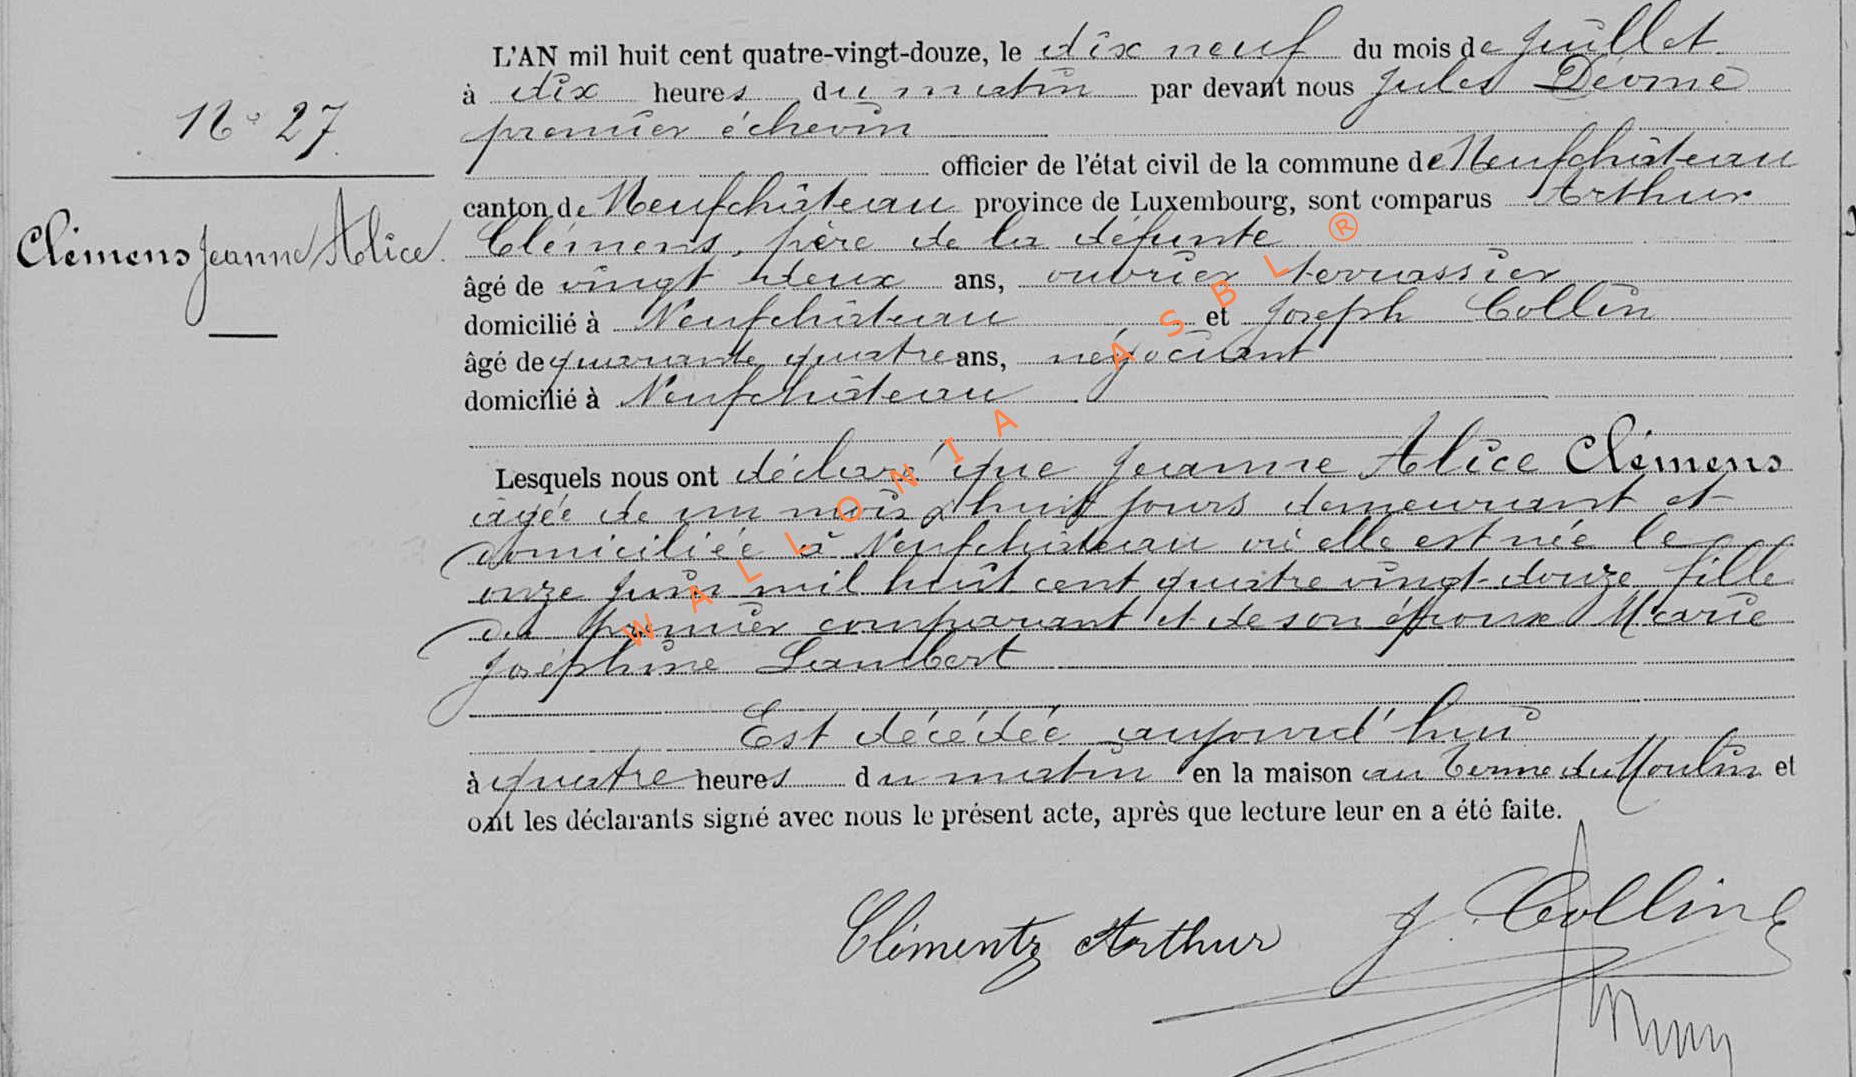 L'AN mil huit cent quatre-vingt-douze, le dix neuf du mois de juillet
à dix heures du matin par devant nous Jules Déome
premier échevin
N° 27
officier de l'état civil de la commune de Neufchâteau
canton de Neufchâteau province de Luxembourg, sont comparus Arthur
Clémens Jeanne Alice.
Clémens, père de la défunte
âgé de vingt deux ans, ouvrier terrassier
domicilié à Neufchâteau et Joseph Collin
âgé de quarante quatre ans, négociant
domicilié à Neufchâteau
Lesquels nous ont déclaré que Jeanne Alice Clémens
âgée de un mois & huit jours demeurant et
domiciliée à Neufchâteau où elle est née le
onze juin mil huit cent quatre vingt-douze fille
du premier comparant et de son épouse Marie
Joséphine Lambert
Est décédée aujourd'hui
à quatre heures du matin en la maison au Terme du Moulin et
ont les déclarants signé avec nous le présent acte, après que lecture leur en a été faite.
Clémentz Arthur J. Collin
WALLONIA ASBL ®